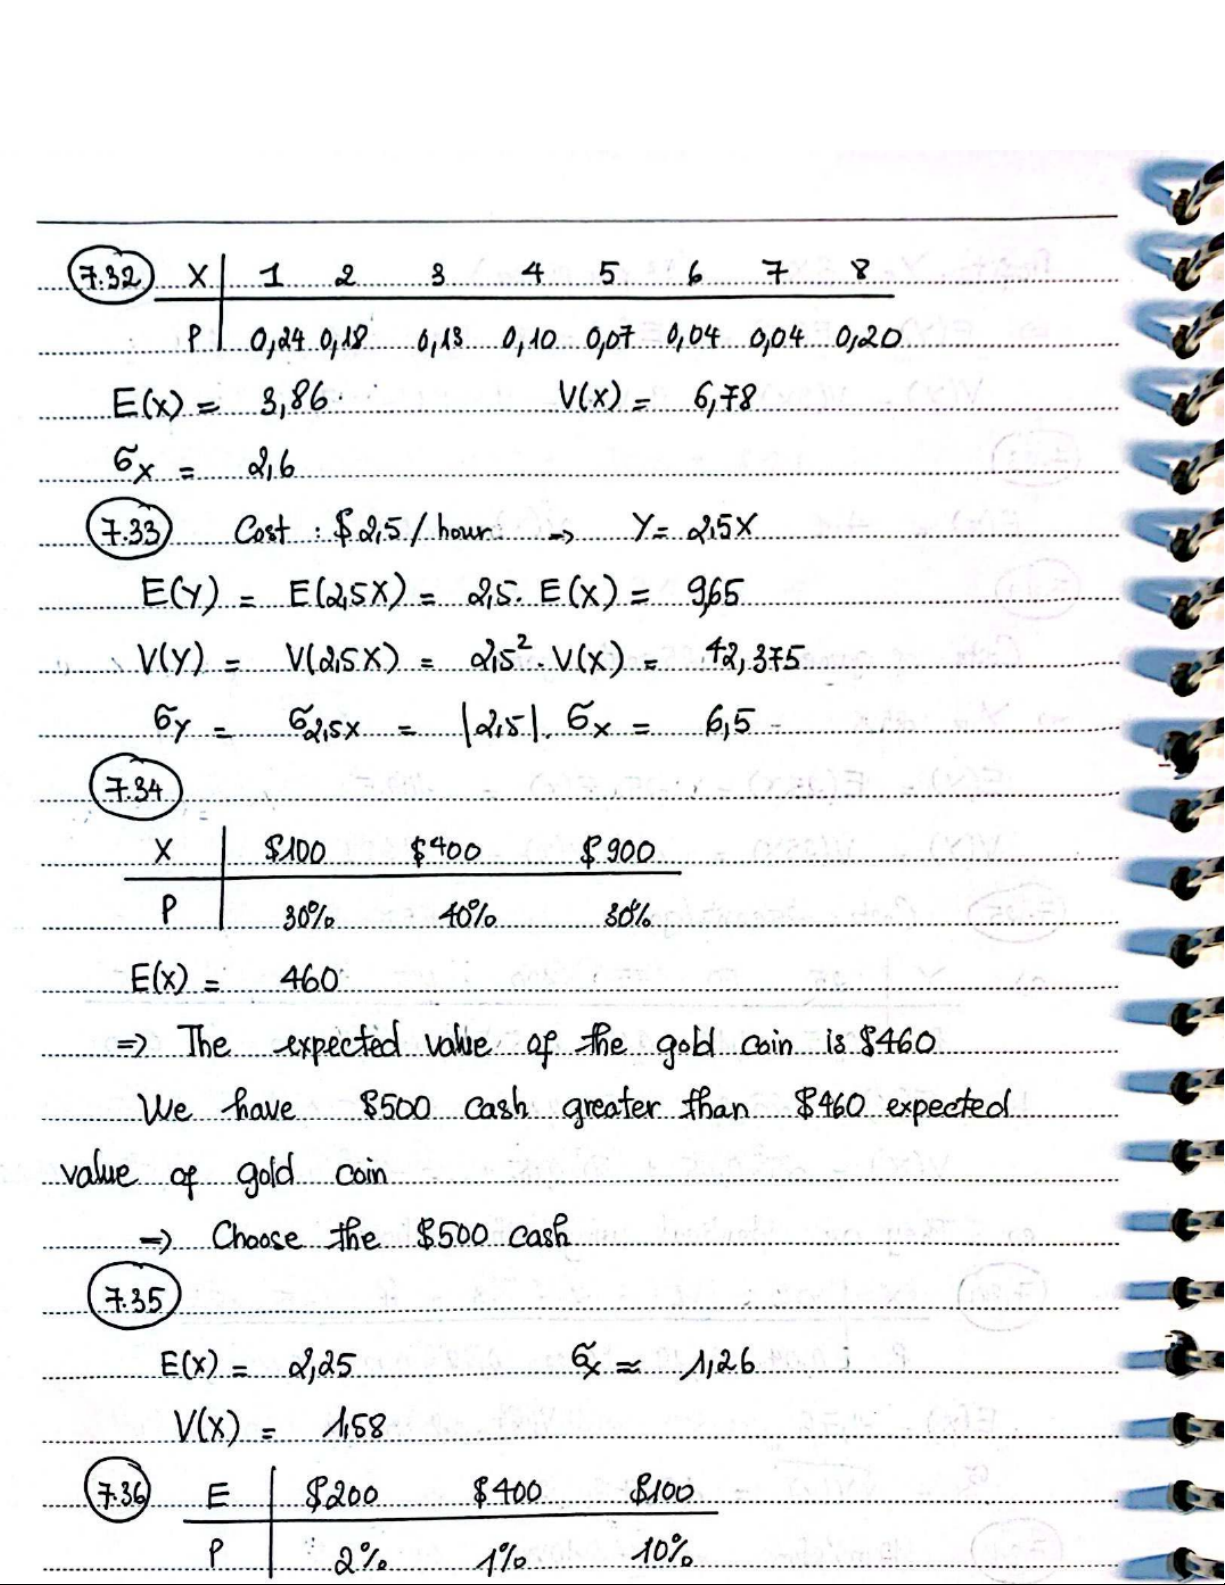 7.32 X 1 2 3 4 5 6 7 8
P 0,24 0,18 0,13 0,10 0,07 0,04 0,04 0,20
E(X) = 3,86 V(X) = 6,78
σx = 2,6
7.33 Cost : $2,5 / hour => Y = 2,5X
E(Y) = E(2,5X) = 2,5. E(X) = 9,65
V(Y) = V(2,5X) = 2,5². V(X) = 42,375
σY = σ2,5X = |2,5|. σX = 6,5
7.34
X $100 $400 $900
P 30% 40% 30%
E(X) = 460
=> The expected value of the gold coin is $460
We have $500 cash greater than $460 expected
value of gold coin
=> Choose the $500 cash
7.35
E(X) = 2,25 σx ≈ 1,26
V(X) = 1,58
7.36 E $200 $400 $100
P 2% 1% 10%